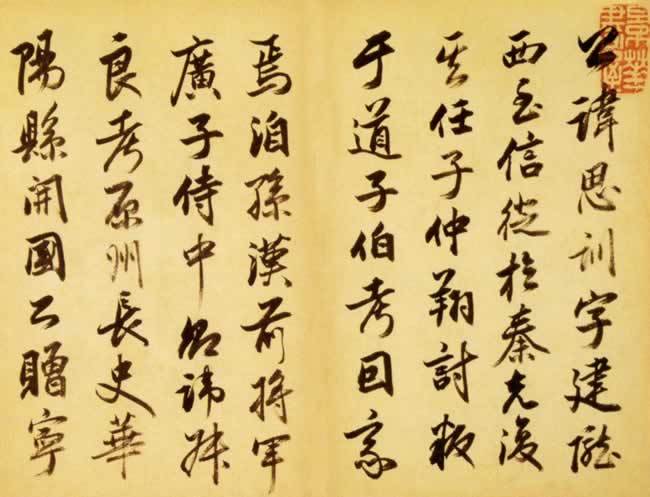 公諱思訓字建隴
西至信徙於秦克復
其任子仲翔討叛
于道子伯考回家
焉洎孫漢前將軍
廣子侍中諱叔
良考原州長史華
陽縣開國公贈寧